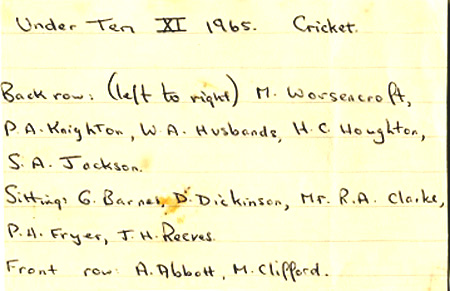 Under Ten XI 1965. Cricket.
Back row: (left to right) M. Worsencroft,
P.A. Knighton, W.A. Husbands, H.C. Houghton,
S.A. Jackson.
Sitting: G. Barnes, D. Dickinson, Mr. R.A. Clarke,
P.H. Fryer, J.H. Reeves.
Front row: A. Abbott, M. Clifford.